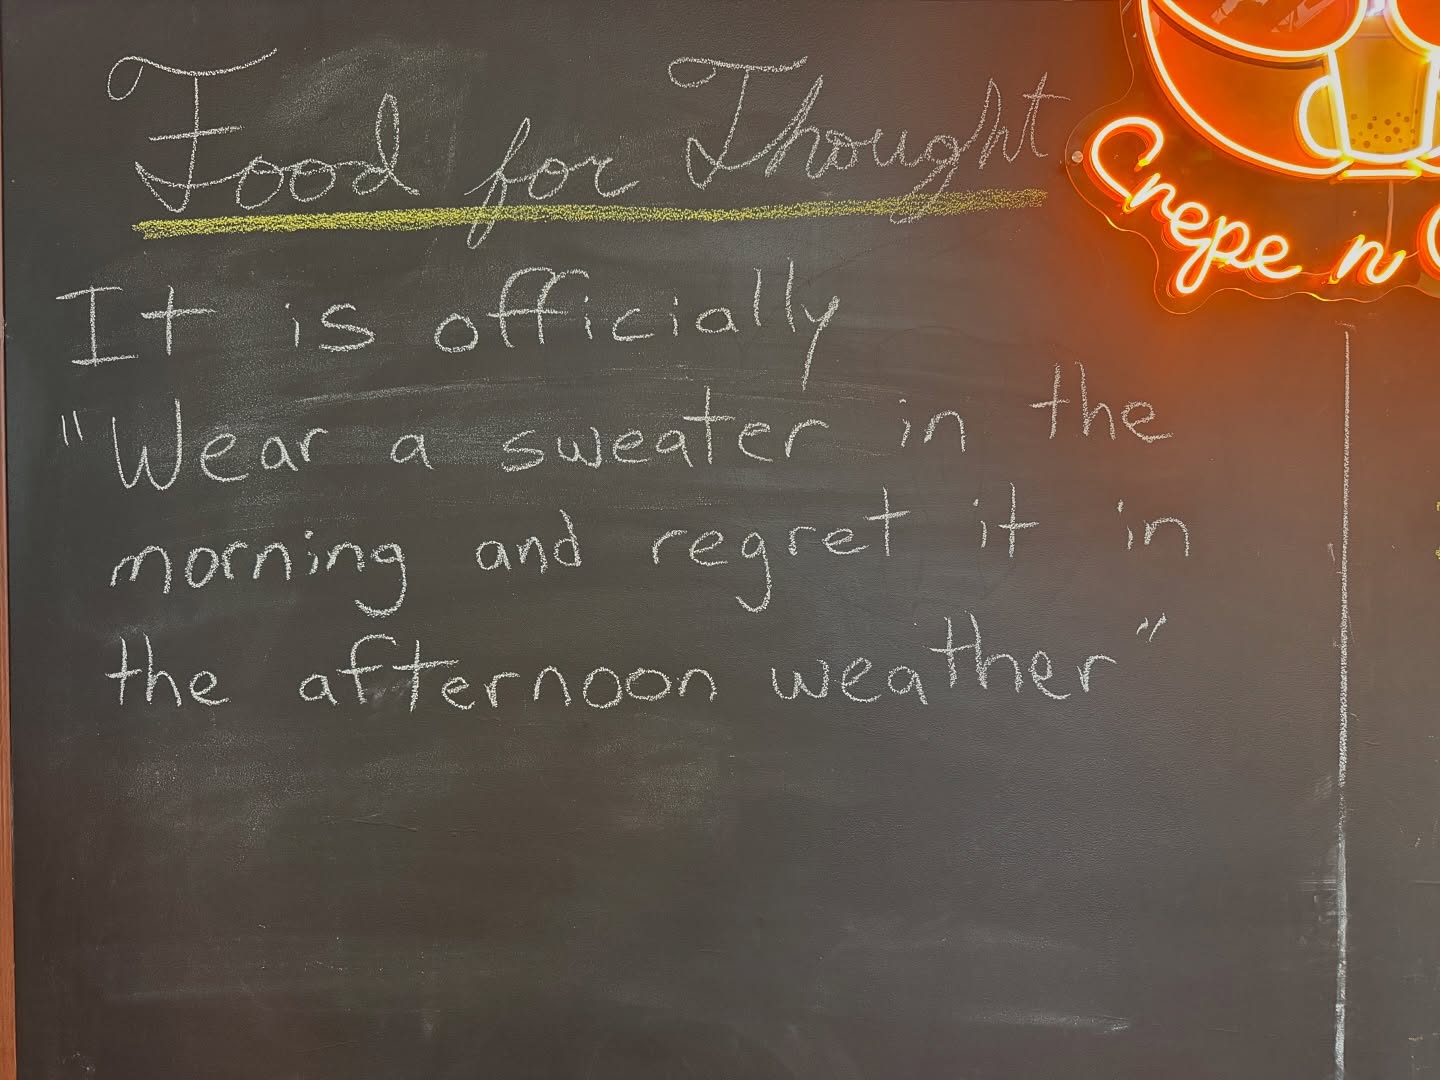 Food for Thought
It is officially
"Wear a sweater in the
morning and regret it in
the afternoon weather"
Crepe n